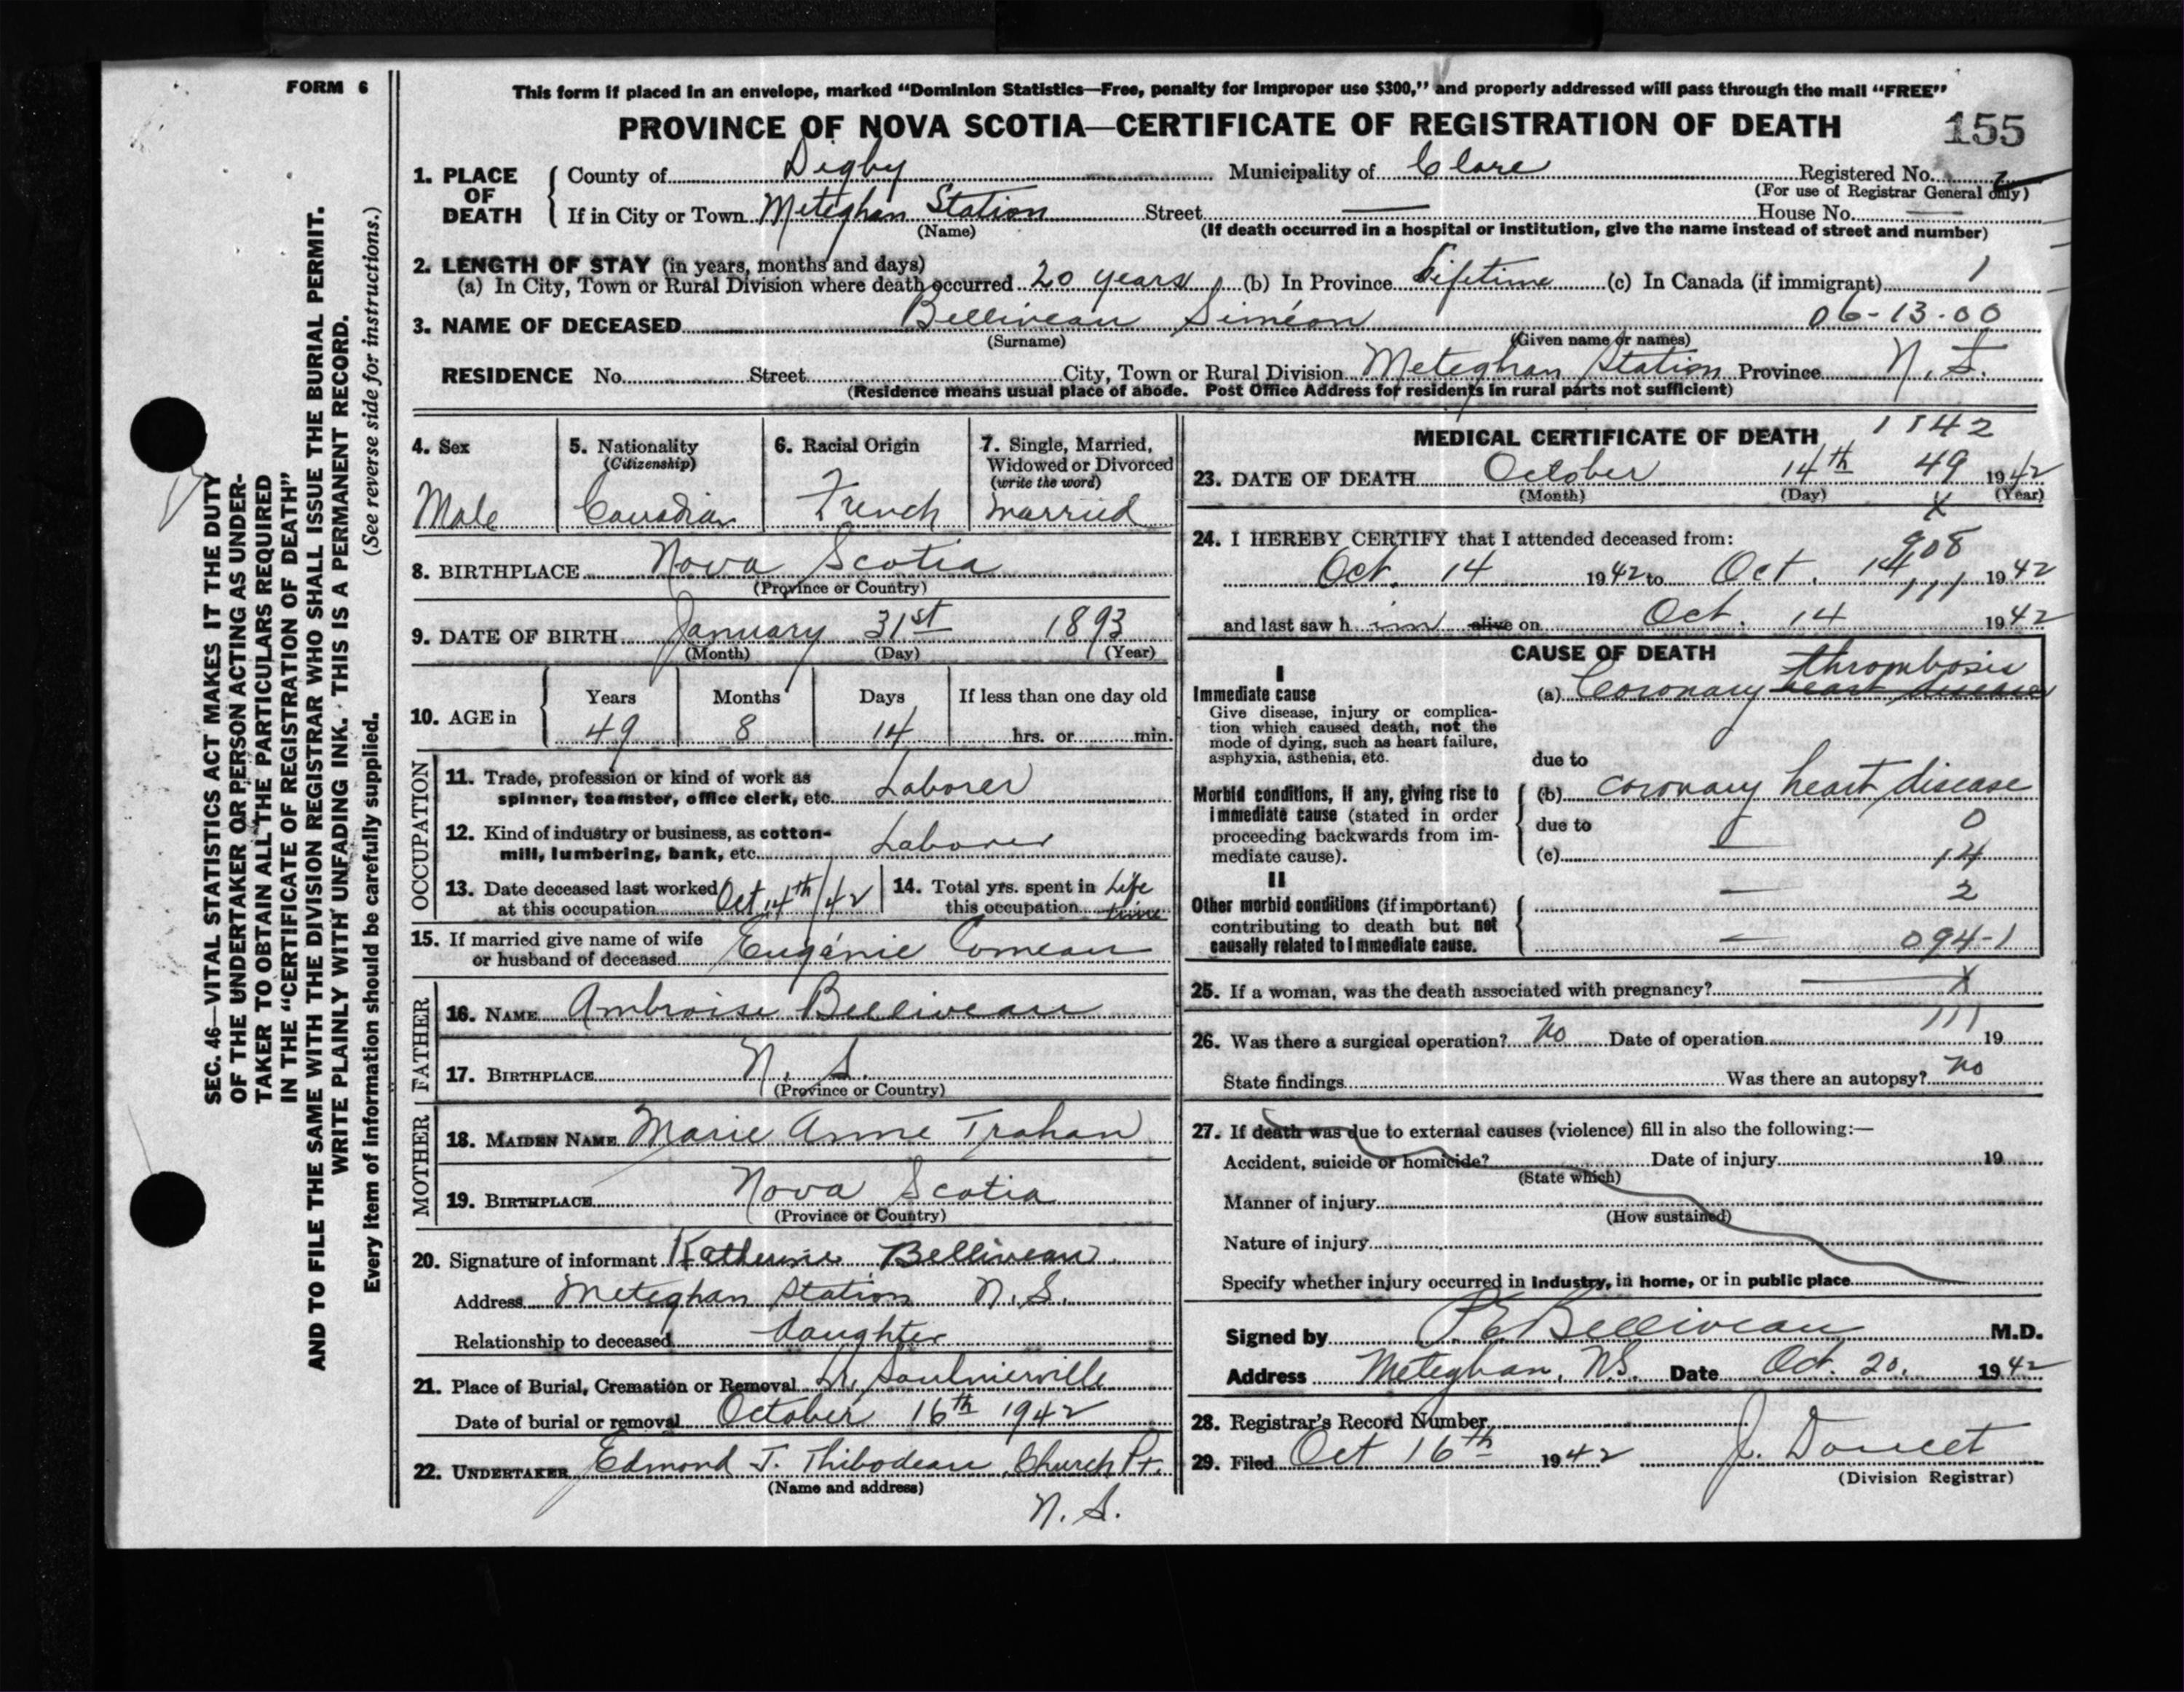 FORM 6
SEC. 46—VITAL STATISTICS ACT MAKES IT THE DUTY
OF THE UNDERTAKER OR PERSON ACTING AS UNDER-
TAKER TO OBTAIN ALL THE PARTICULARS REQUIRED
IN THE "CERTIFICATE OF REGISTRATION OF DEATH"
AND TO FILE THE SAME WITH THE DIVISION REGISTRAR WHO SHALL ISSUE THE BURIAL PERMIT.
WRITE PLAINLY WITH UNFADING INK. THIS IS A PERMANENT RECORD.
Every item of information should be carefully supplied. (See reverse side for instructions.)
This form if placed in an envelope, marked "Dominion Statistics—Free, penalty for improper use $300," and properly addressed will pass through the mail "FREE"
PROVINCE OF NOVA SCOTIA—CERTIFICATE OF REGISTRATION OF DEATH 155
1. PLACE OF DEATH
County of Digby Municipality of Clare Registered No.
(For use of Registrar General only)
If in City or Town Meteghan Station Street — House No. —
(Name) (If death occurred in a hospital or institution, give the name instead of street and number)
2. LENGTH OF STAY (in years, months and days)
(a) In City, Town or Rural Division where death occurred 20 years (b) In Province Lifetime (c) In Canada (if immigrant) 1
3. NAME OF DECEASED Belliveau Siméon 06-13-00
(Surname) (Given name or names)
RESIDENCE No. Street City, Town or Rural Division Meteghan Station Province N.S.
(Residence means usual place of abode. Post Office Address for residents in rural parts not sufficient)
4. Sex
Male
5. Nationality
(Citizenship)
Canadian
6. Racial Origin
French
7. Single, Married,
Widowed or Divorced
(write the word)
Married
8. BIRTHPLACE Nova Scotia
(Province or Country)
9. DATE OF BIRTH January 31st 1893
(Month) (Day) (Year)
10. AGE in
Years Months Days If less than one day old
49 8 14 hrs. or min.
OCCUPATION
11. Trade, profession or kind of work as
spinner, teamster, office clerk, etc. Laborer
12. Kind of industry or business, as cotton-
mill, lumbering, bank, etc. Laborer
13. Date deceased last worked
at this occupation Oct 14th/42
14. Total yrs. spent in
this occupation Life time
15. If married give name of wife
or husband of deceased Eugénie Comeau
FATHER
16. NAME Ambroise Belliveau
17. BIRTHPLACE N. S.
(Province or Country)
MOTHER
18. MAIDEN NAME Marie Anne Trahan
19. BIRTHPLACE Nova Scotia
(Province or Country)
20. Signature of informant Katherine Belliveau
Address Meteghan Station N.S.
Relationship to deceased daughter
21. Place of Burial, Cremation or Removal Saulnierville
Date of burial or removal October 16th 1942
22. UNDERTAKER Edmond J. Thibodeau, Church Pt.
(Name and address)
N. S.
MEDICAL CERTIFICATE OF DEATH 1842
23. DATE OF DEATH October 14th 49 1942
(Month) (Day) (Year)
x
24. I HEREBY CERTIFY that I attended deceased from:
908
Oct. 14 1942 to Oct. 14, 1942
111
and last saw him alive on Oct. 14 1942
CAUSE OF DEATH
I
Immediate cause
Give disease, injury or complica-
tion which caused death, not the
mode of dying, such as heart failure,
asphyxia, asthenia, etc.
thrombosis
(a) Coronary heart disease
due to
Morbid conditions, if any, giving rise to
immediate cause (stated in order
proceeding backwards from im-
mediate cause).
(b) coronary heart disease
due to 0
(c) — 14
II
Other morbid conditions (if important)
contributing to death but not
causally related to immediate cause.
— 2
— 094-1
25. If a woman, was the death associated with pregnancy? — x
111
26. Was there a surgical operation? No Date of operation 19
State findings Was there an autopsy? No
27. If death was due to external causes (violence) fill in also the following:—
Accident, suicide or homicide? Date of injury 19
(State which)
Manner of injury
(How sustained)
Nature of injury
Specify whether injury occurred in industry, in home, or in public place
Signed by P E Belliveau M.D.
Address Meteghan, NS. Date Oct. 20, 1942
28. Registrar's Record Number
29. Filed Oct 16th 1942 J. Doucet
(Division Registrar)